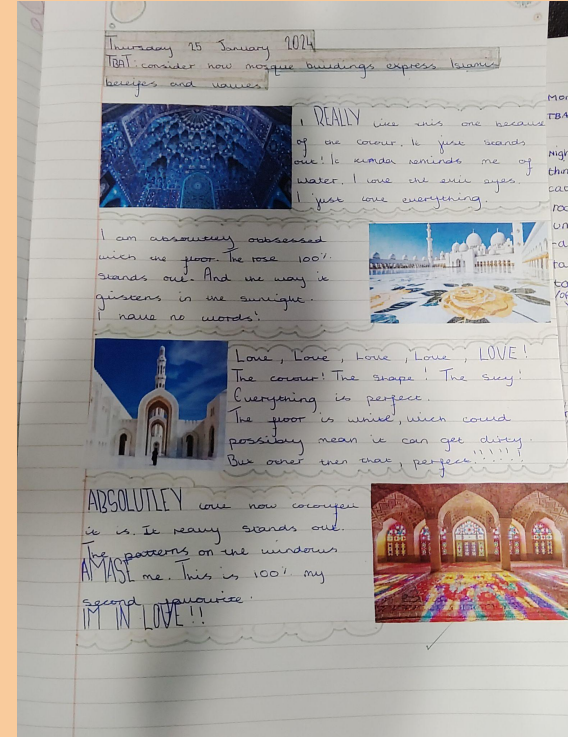 Thursday 25 January 2024
TBAT: consider how mosque buildings express Islamic
beleifes and values
I REALLY like this one because
of the colour. It just stands
out! It kinda reminds me of
water. I love the eyes.
I just love everything.
I am absolutley obbsessed
with the floor. The rose 100%
stands out. And the way it
glistens in the sunlight.
I have no words!
Love, Love, Love, Love, LOVE!
The colour! The shape! The sky!
Everything is perfect.
The floor is white, wich could
possibly mean it can get dirty.
But other then that, perfect!!!!!!
ABSOLUTLEY love how colorful
it is. It really stands out.
The patterns on the windows
AMASE me. This is 100% my
second favourite.
IM IN LOVE!!
Mon
TBA
Nigh
thin
roo
un